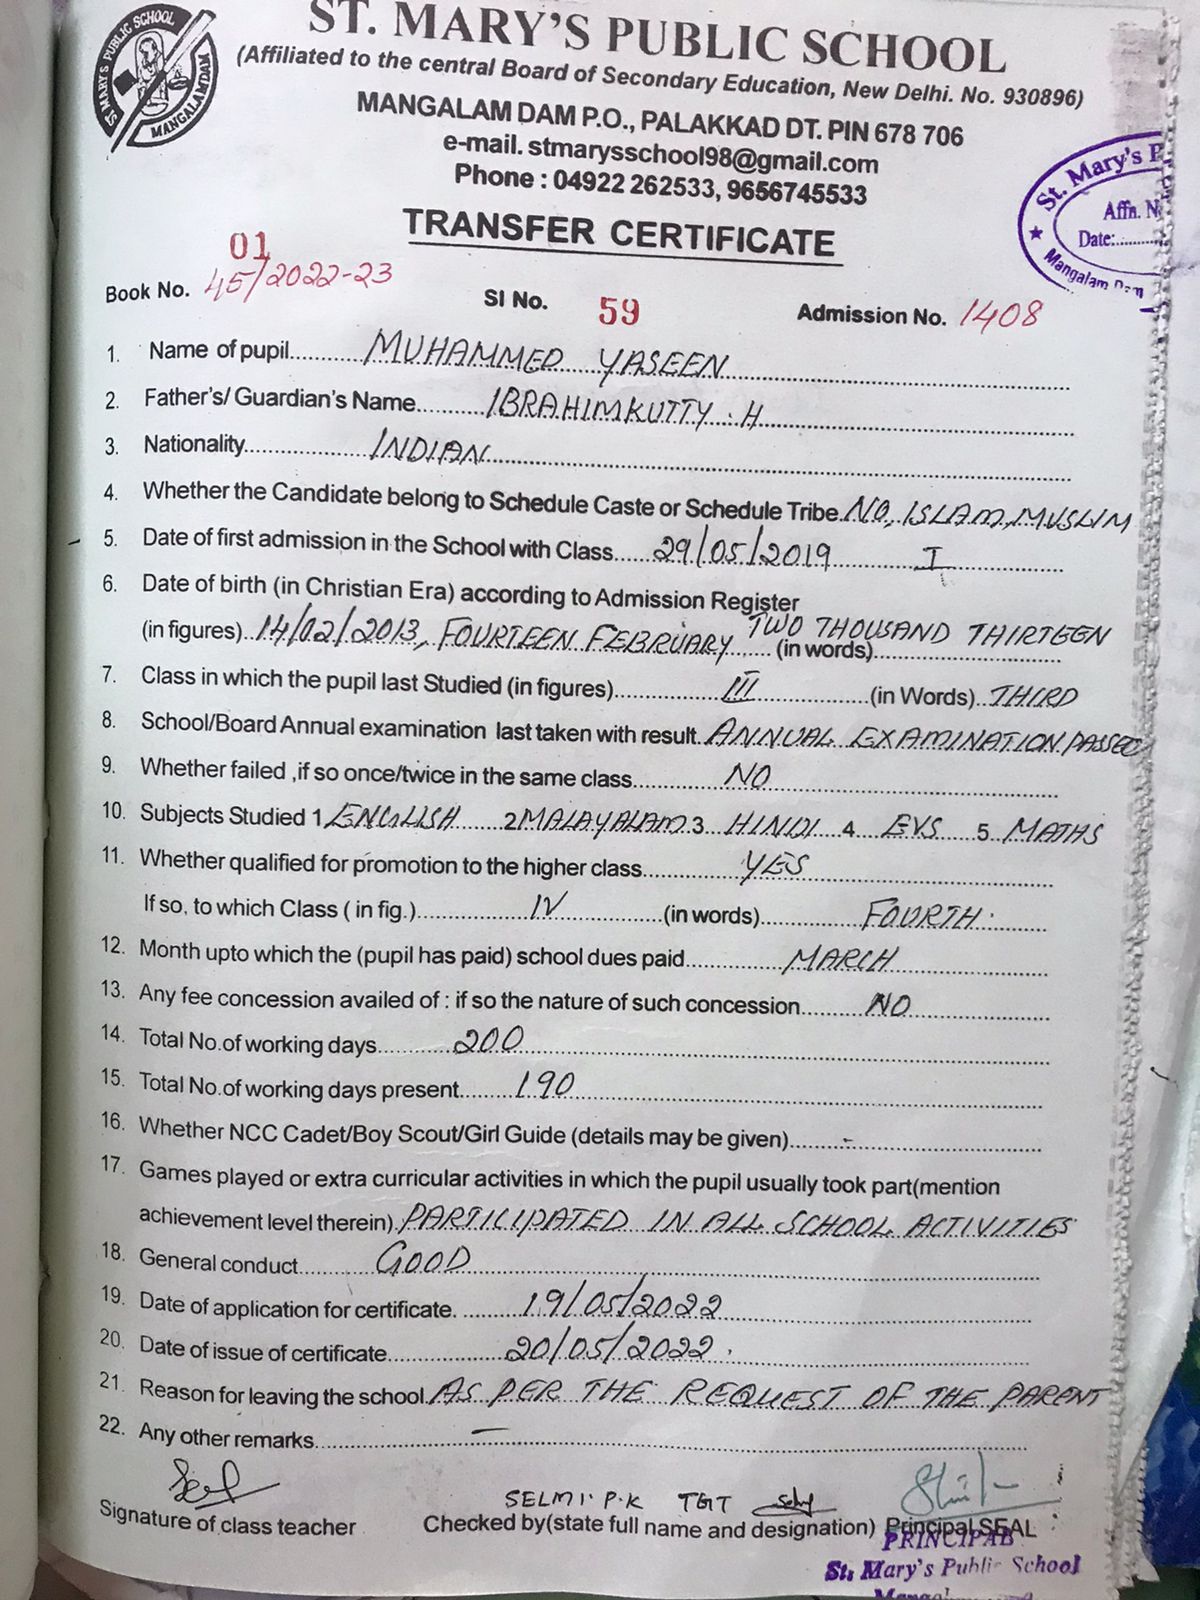 ST. MARY'S PUBLIC SCHOOL
(Affiliated to the central Board of Secondary Education, New Delhi. No. 930896)
MANGALAM DAM P.O., PALAKKAD DT. PIN 678 706
e-mail. stmarysschool98@gmail.com
Phone : 04922 262533, 9656745533
ST MARY'S PUBLIC SCHOOL
MANGALAMDAM
St. Mary's P
Affn. N
Date:..........
Mangalam Dam
TRANSFER CERTIFICATE
01
Book No. 45/2022-23 SI No. 59 Admission No. 1408
1. Name of pupil MUHAMMED YASEEN
2. Father's/ Guardian's Name IBRAHIMKUTTY . H
3. Nationality INDIAN
4. Whether the Candidate belong to Schedule Caste or Schedule Tribe NO, ISLAM, MUSLIM
5. Date of first admission in the School with Class 29/05/2019 I
6. Date of birth (in Christian Era) according to Admission Register
(in figures) 14/02/2013, FOURTEEN FEBRUARY (in words) TWO THOUSAND THIRTEEN
7. Class in which the pupil last Studied (in figures) III (in Words) THIRD
8. School/Board Annual examination last taken with result ANNUAL EXAMINATION, PASSED
9. Whether failed ,if so once/twice in the same class NO
10. Subjects Studied 1 ENGLISH 2 MALAYALAM 3 HINDI 4 EVS 5 MATHS
11. Whether qualified for promotion to the higher class YES
If so, to which Class ( in fig.) IV (in words) FOURTH.
12. Month upto which the (pupil has paid) school dues paid MARCH
13. Any fee concession availed of : if so the nature of such concession NO
14. Total No.of working days 200
15. Total No.of working days present 190
16. Whether NCC Cadet/Boy Scout/Girl Guide (details may be given) -
17. Games played or extra curricular activities in which the pupil usually took part(mention
achievement level therein) PARTICIPATED IN ALL SCHOOL ACTIVITIES
18. General conduct GOOD
19. Date of application for certificate. 19/05/2022
20. Date of issue of certificate 20/05/2022.
21. Reason for leaving the school AS PER THE REQUEST OF THE PARENT
22. Any other remarks —
SELMI. P.K TGT
Signature of class teacher Checked by(state full name and designation) Principal SEAL
PRINCIPAL
St. Mary's Public School